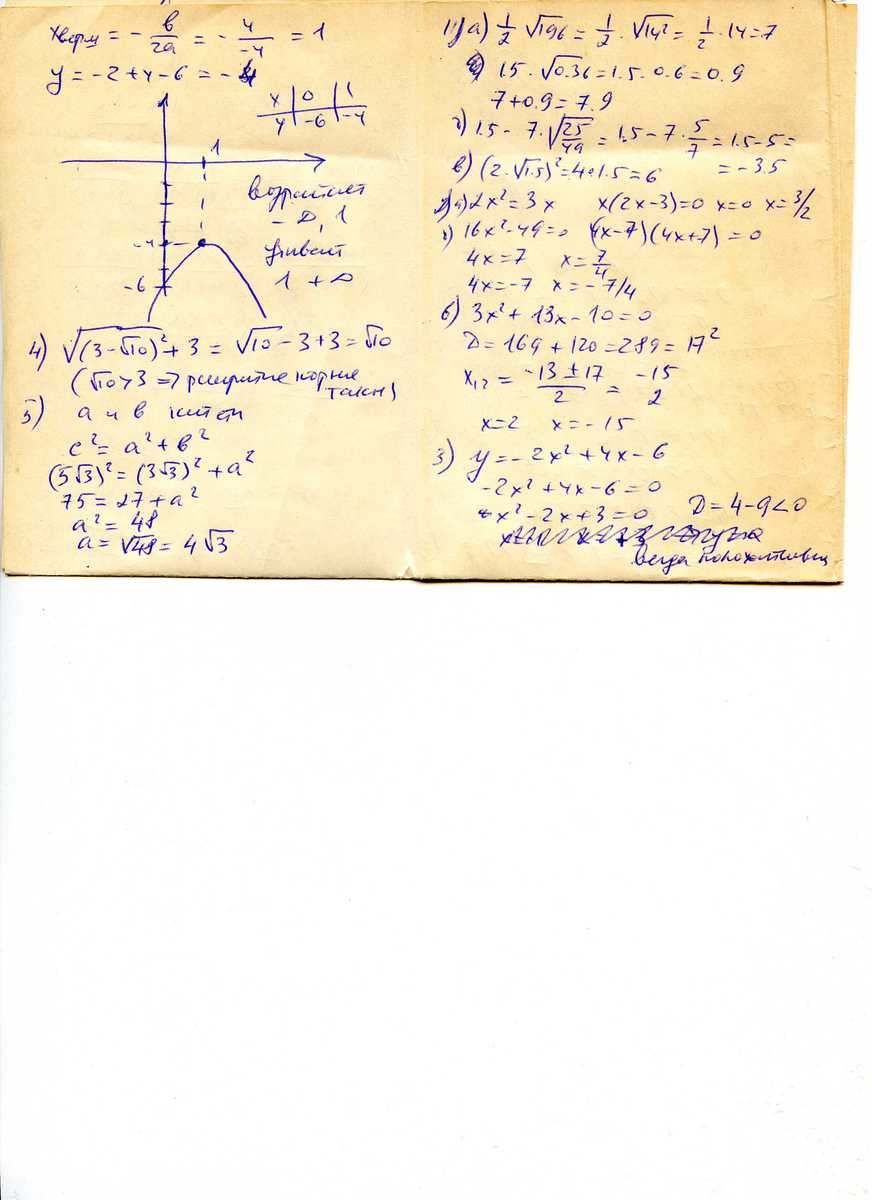 xверш = - в/2a = - 4/-4 = 1
y = -2+4-6 = -4
x | 0 | 1
y | -6 | -4
1
возрастает
-∞, 1
-4
убывает
1 +∞
-6
4) √(3-√10)² + 3 = √10 - 3 + 3 = √10
(√10 > 3 => раскрытие корня
5) a и в катеты
c² = a² + в²
(5√3)² = (3√3)² + a²
75 = 27 + a²
a² = 48
a = √48 = 4√3
1) a) 1/2 √196 = 1/2 · √14² = 1/2 · 14 = 7
1.5 · √0.36 = 1.5 · 0.6 = 0.9
7+0.9 = 7.9
1.5 - 7 · √25/49 = 1.5 - 7 · 5/7 = 1.5 - 5 =
= -3.5
в) (2·√1.5)² = 4·1.5 = 6
2) a) 2x² = 3x x(2x-3)=0 x=0 x=3/2
16x²-49=0 (4x-7)(4x+7)=0
4x=7 x=7/4
4x=-7 x=-7/4
3x² + 13x - 10 = 0
D = 169 + 120 = 289 = 17²
x₁₂ = -13 ± 17/2 = -15/2
x=2 x=-15
3) y = -2x² + 4x - 6
-2x² + 4x - 6 = 0
x² - 2x + 3 = 0 D = 4-9<0
всегда